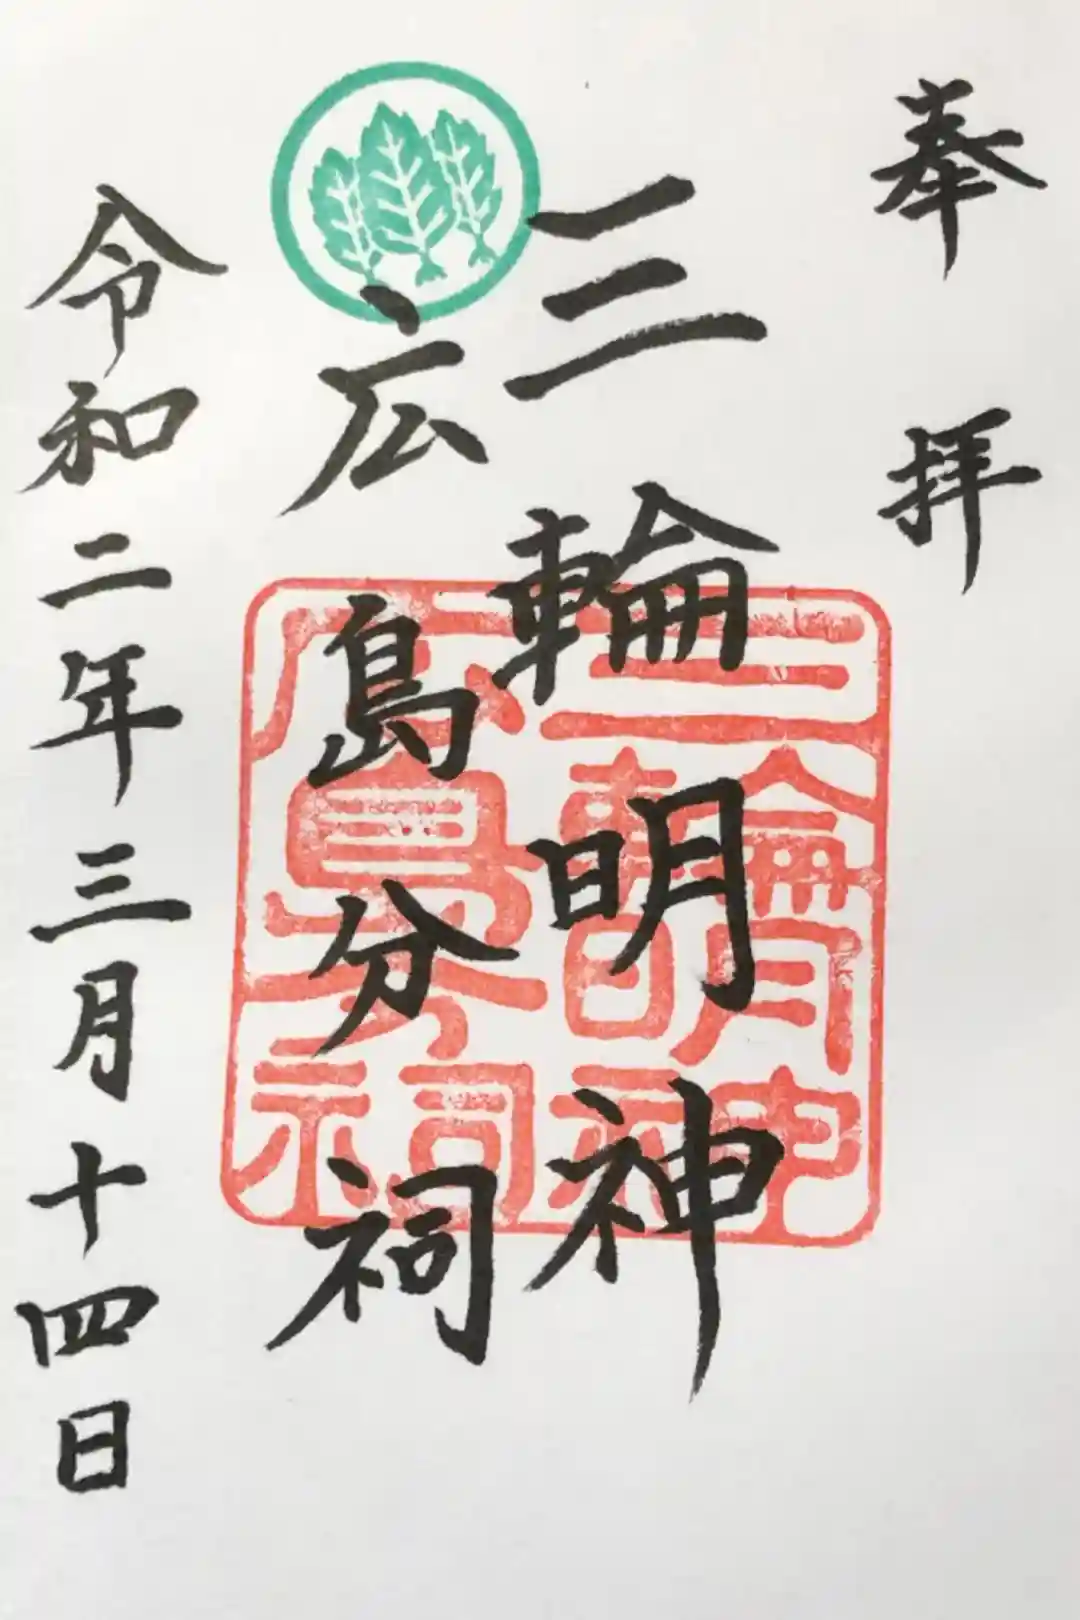 奉拝
三輪明神
広島分祠
令和二年三月十四日
三輪明神
広島分祠